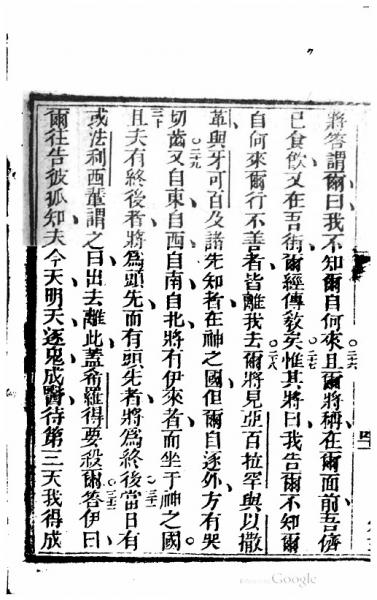 將答謂爾曰我不知爾自何來且爾將稱在爾面前吾儕
已食飲又在吾街爾經傳教矣惟其將曰我告爾不知爾
自何來爾行不善者皆離我去爾將見亞百拉罕與以撒
革與牙可百及諸先知者在神之國但爾自逐外方有哭
切齒又自東自西自南自北將有伊來者而坐于神之國
且夫有終後者將為頭先而有頭先者將為終後當日有
或法利西輩謂之曰出去離此蓋希羅得要殺爾答伊曰
爾往告彼狐知夫今天明天逐鬼成醫待第三天我得成
Google